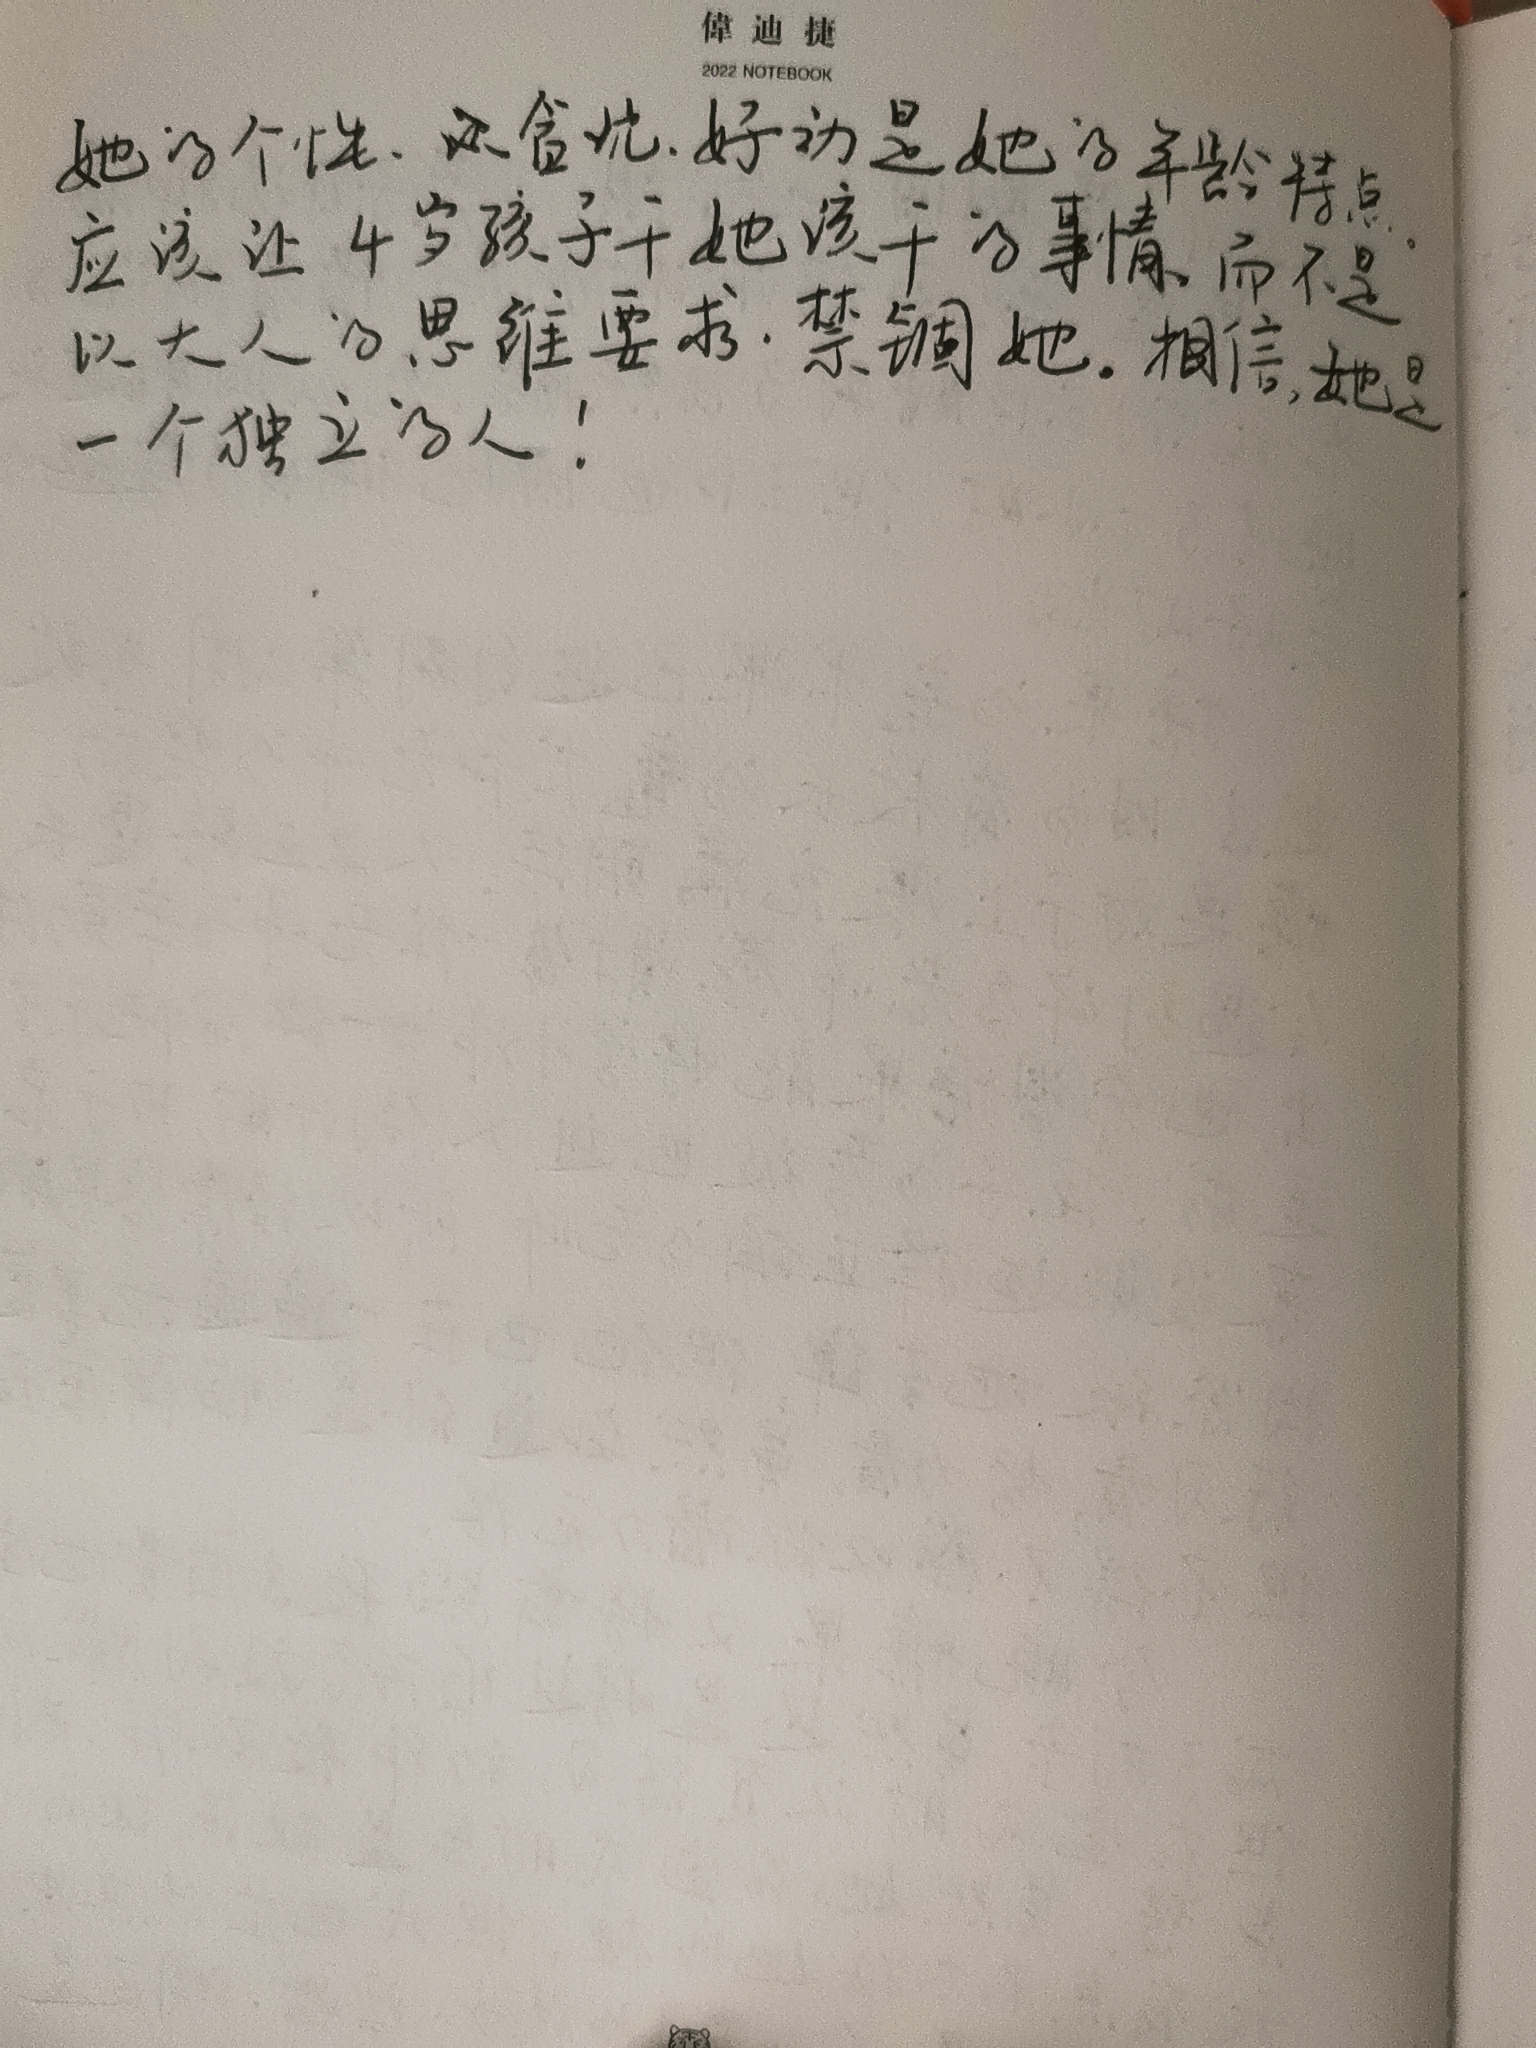 偉迪捷
2022 NOTEBOOK
她的个性、贪玩、好动是她的年龄特点。
应该让4岁孩子干她该干的事情。而不是
以大人的思维要求、禁锢她。相信,她是
一个独立的人!